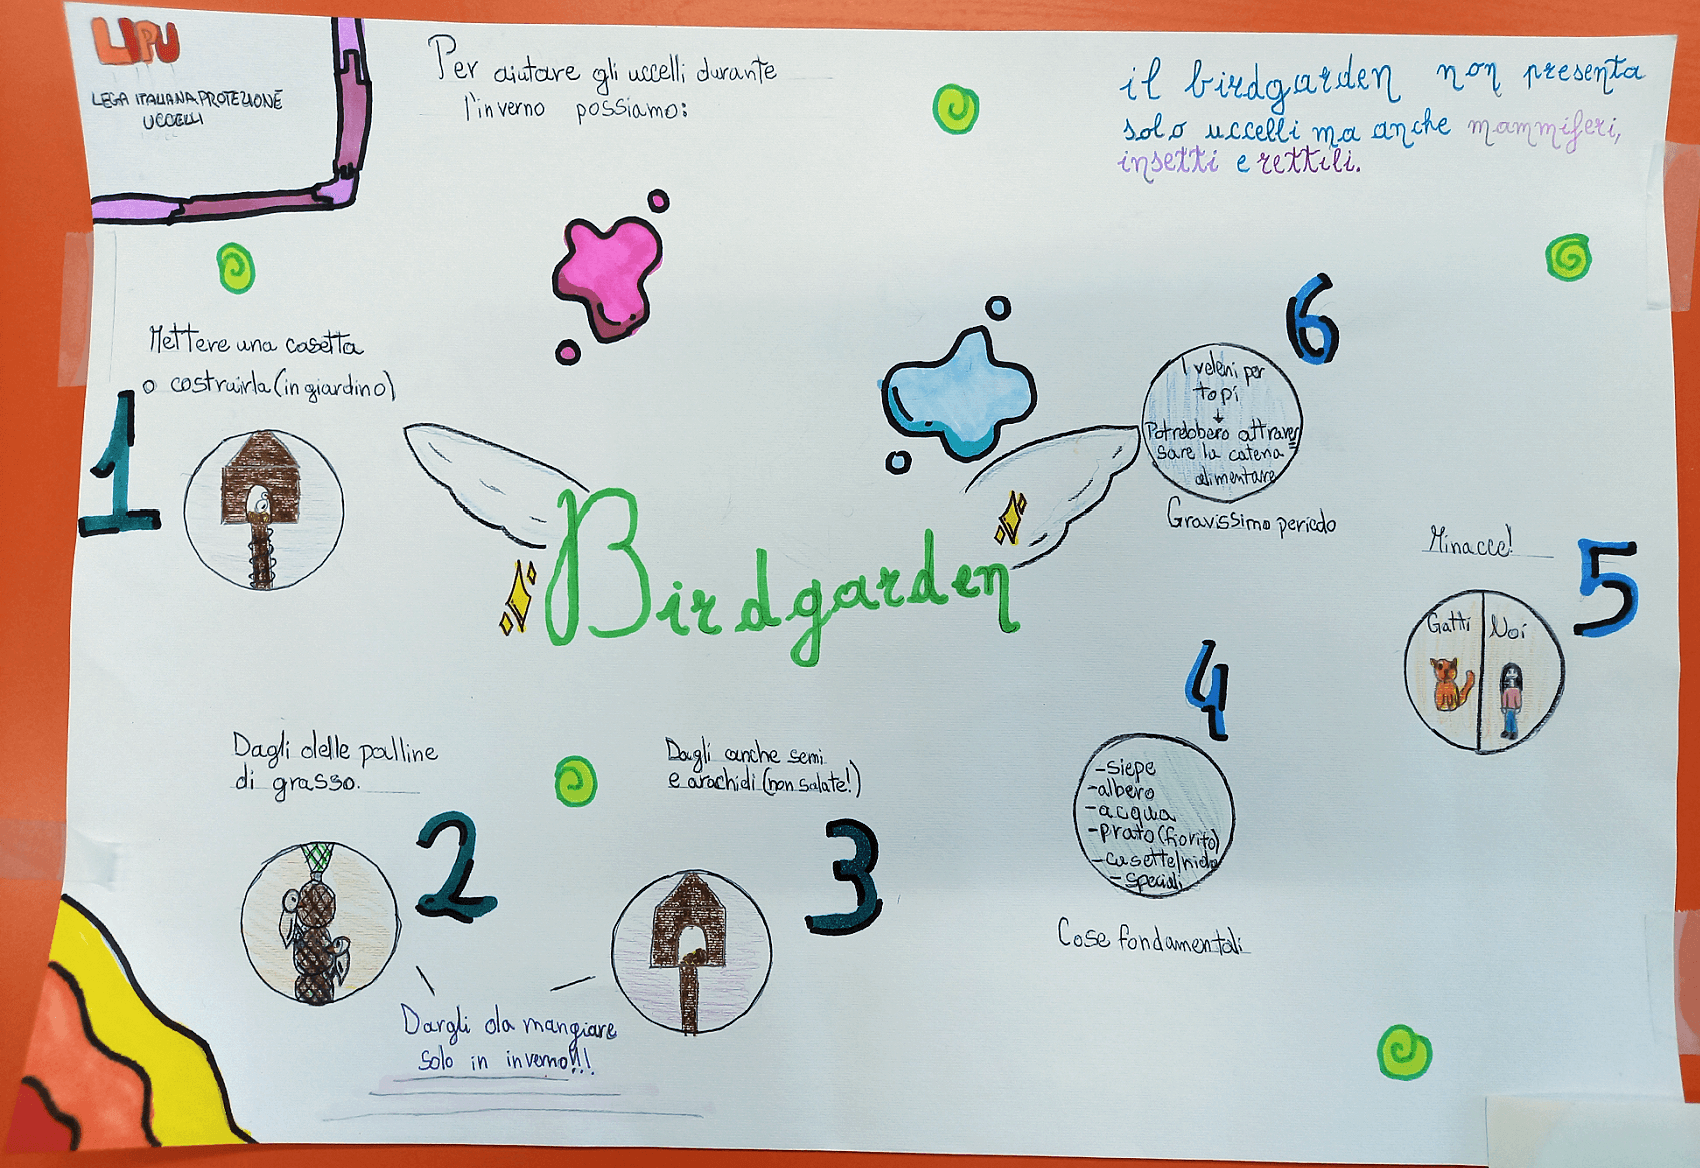 LIPU
LEGA ITALIANA PROTEZIONE
UCCELLI
Per aiutare gli uccelli durante
l'inverno possiamo:
il birdgarden non presenta
solo uccelli ma anche mammiferi,
insetti e rettili.
Mettere una casetta
o costruirla (in giardino)
1
Birdgarden
6
I veleni per
topi
↓
Potrebbero attraver
sare la catena
alimentare
Gravissimo pericolo
Minacce!
5
Gatti
Noi
4
-siepe
-albero
-acqua
-prato (fiorito)
-casette/nido
- speciali
Cose fondamentali
Dagli delle palline
di grasso.
2
Dagli anche semi
e arachidi (non salate!)
3
Dargli da mangiare
solo in inverno!!!